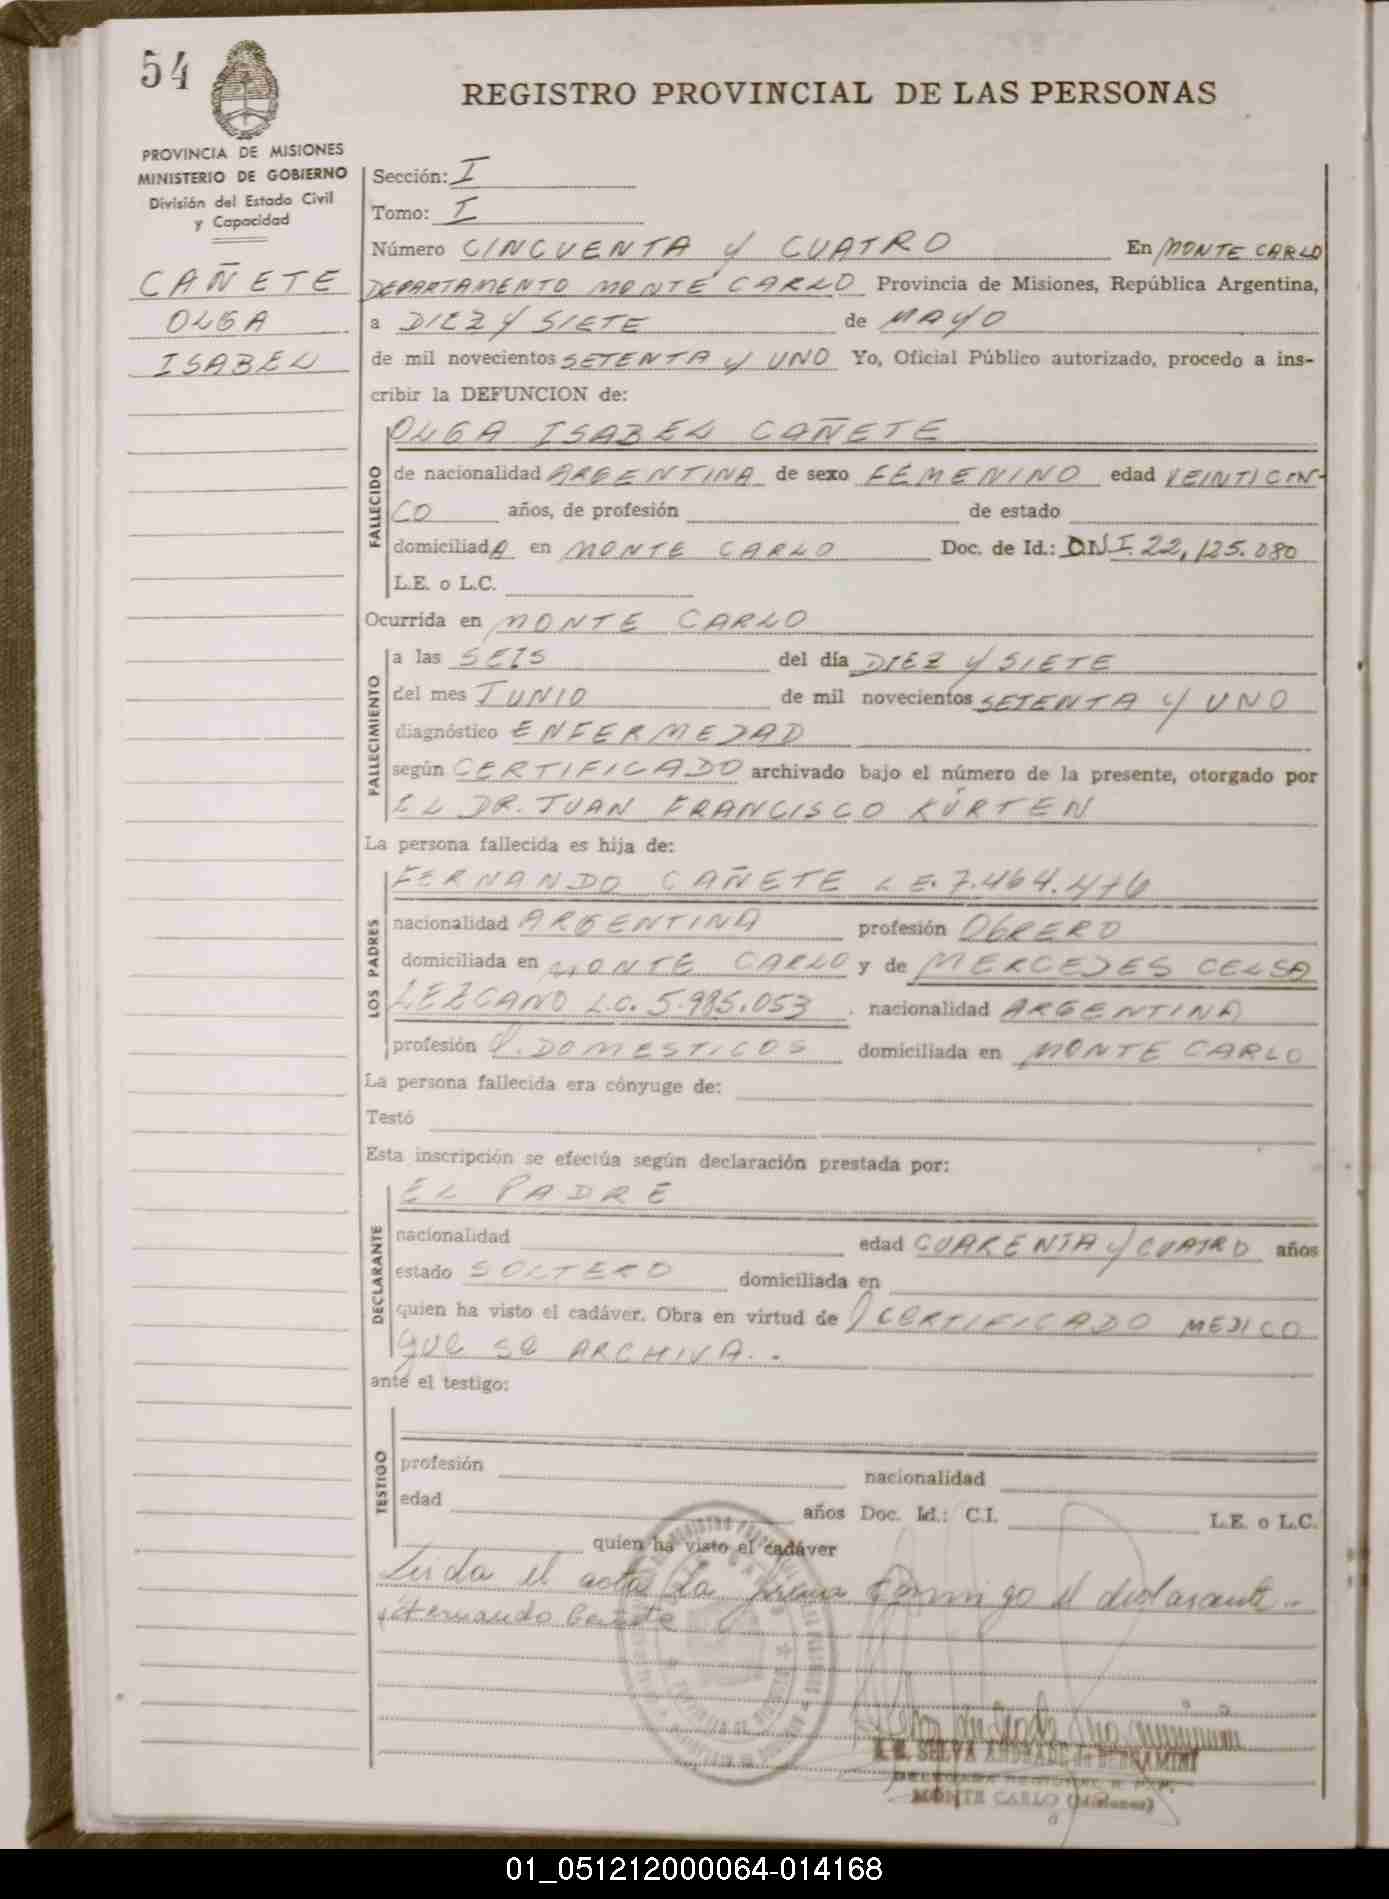 54
REGISTRO PROVINCIAL DE LAS PERSONAS
PROVINCIA DE MISIONES
MINISTERIO DE GOBIERNO
División del Estado Civil
y Capacidad
CAÑETE
OLGA
ISABEL
Sección: I
Tomo: I
Número CINCUENTA Y CUATRO En MONTE CARLO
DEPARTAMENTO MONTE CARLO Provincia de Misiones, República Argentina,
a DIEZ Y SIETE de MAYO
de mil novecientos SETENTA Y UNO Yo, Oficial Público autorizado, procedo a ins-
cribir la DEFUNCION de:
FALLECIDO
OLGA ISABEL CAÑETE
de nacionalidad ARGENTINA de sexo FEMENINO edad VEINTICIN-
CO años, de profesión de estado
domiciliadA en MONTE CARLO Doc. de Id.: D.N.I. 22,125.080
L.E. o L.C.
Ocurrida en MONTE CARLO
FALLECIMIENTO
a las SEIS del día DIEZ Y SIETE
del mes JUNIO de mil novecientos SETENTA Y UNO
diagnóstico ENFERMEDAD
según CERTIFICADO archivado bajo el número de la presente, otorgado por
EL DR. JUAN FRANCISCO KÜRTEN
La persona fallecida es hija de:
LOS PADRES
FERNANDO CAÑETE L.E. 7.464.476
nacionalidad ARGENTINA profesión OBRERO
domiciliada en MONTE CARLO y de MERCEDES CELSA
LEZCANO L.C. 5.985.053 nacionalidad ARGENTINA
profesión Q. DOMESTICOS domiciliada en MONTE CARLO
La persona fallecida era cónyuge de:
Testó
Esta inscripción se efectúa según declaración prestada por:
DECLARANTE
EL PADRE
nacionalidad edad CUARENTA Y CUATRO años
estado SOLTERO domiciliada en
quien ha visto el cadáver. Obra en virtud de CERTIFICADO MEDICO
QUE SE ARCHIVA..
ante el testigo:
TESTIGO
profesión nacionalidad
edad años Doc. Id.: C.I. L.E. o L.C.
quien ha visto el cadáver
Leida el acta la firma conmigo el declarante..
Fernando Cañete
MONTE CARLO (Misiones)
01_051212000064-014168